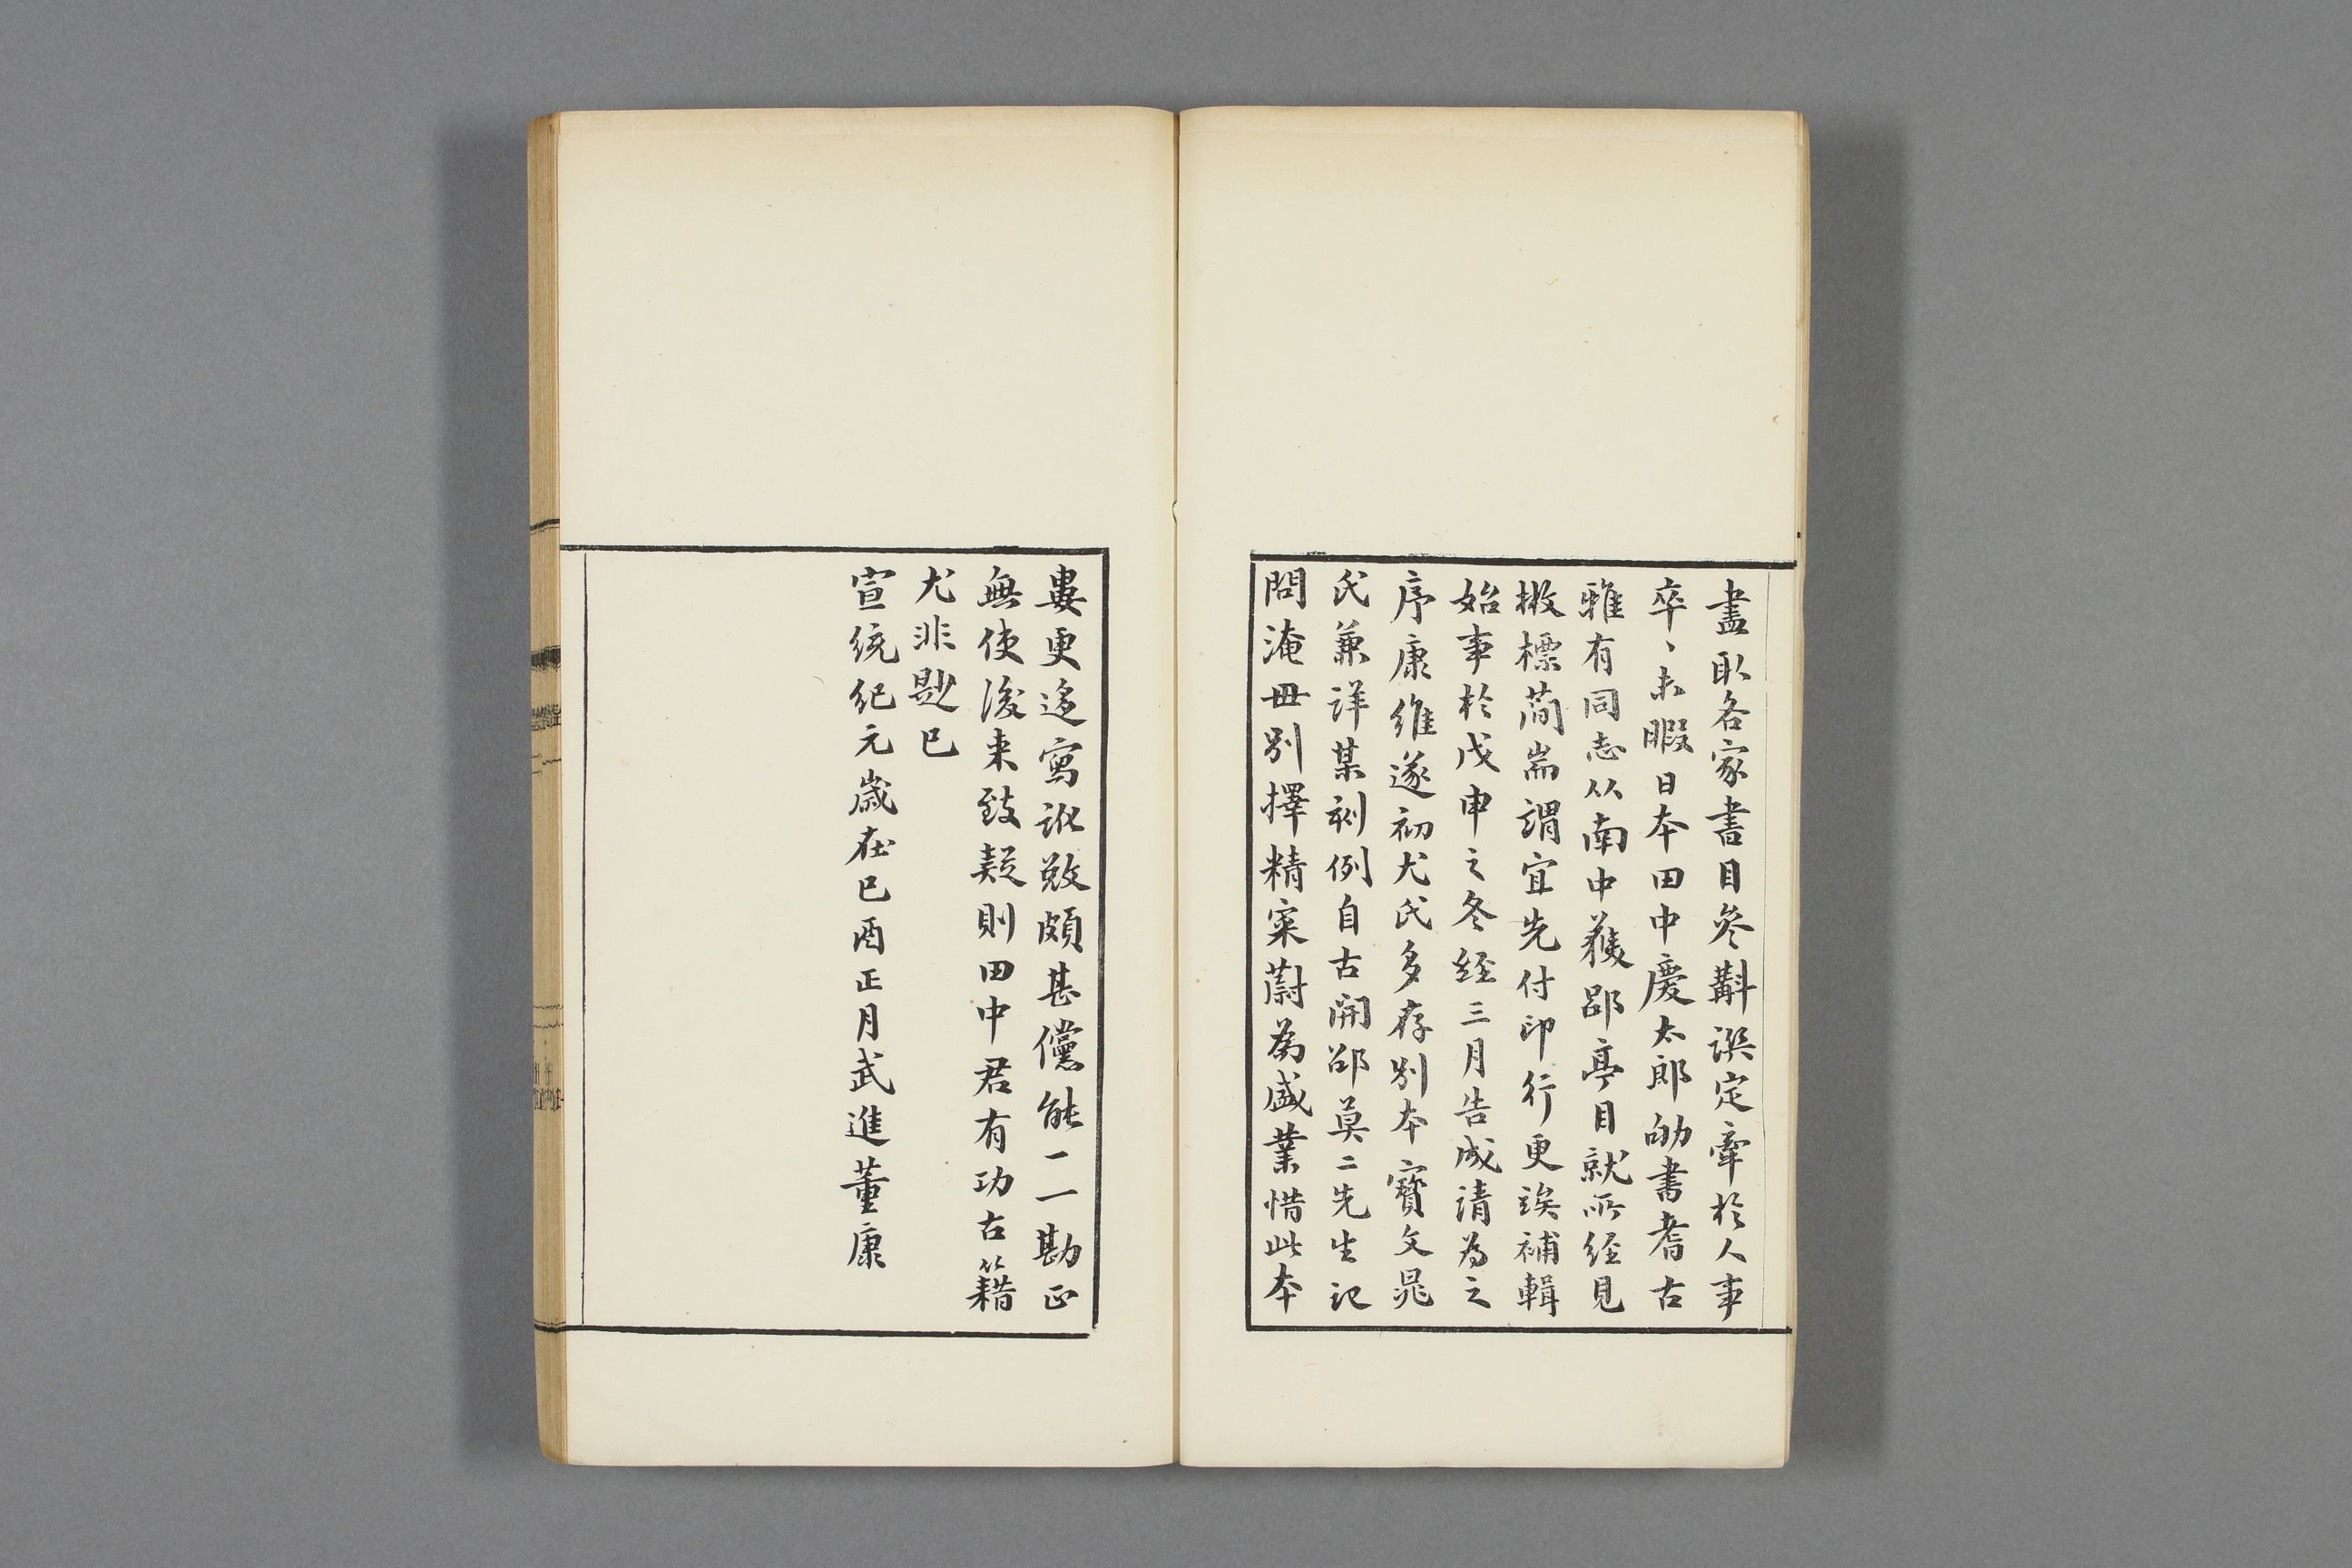 盡取各家書目參斠譔定牽於人事
卒〻未暇日本田中慶太郎劬書耆古
雅有同志从南中獲郘亭目就所經見
撤標蕳耑謂宜先付印行更竢補輯
始事於戊申之冬經三月告成請為之
序康維遂初尤氏多存別本寶文晁
氏兼詳某刻例自古開邵莫二先生記
問淹毌別擇精宷蔚為盛業惜此本
婁更迻寫訛敚頗甚儻能一一勘正
無使後来致疑則田中君有功古籍
尤非尟已
宣統紀元歲在己酉正月武進董康